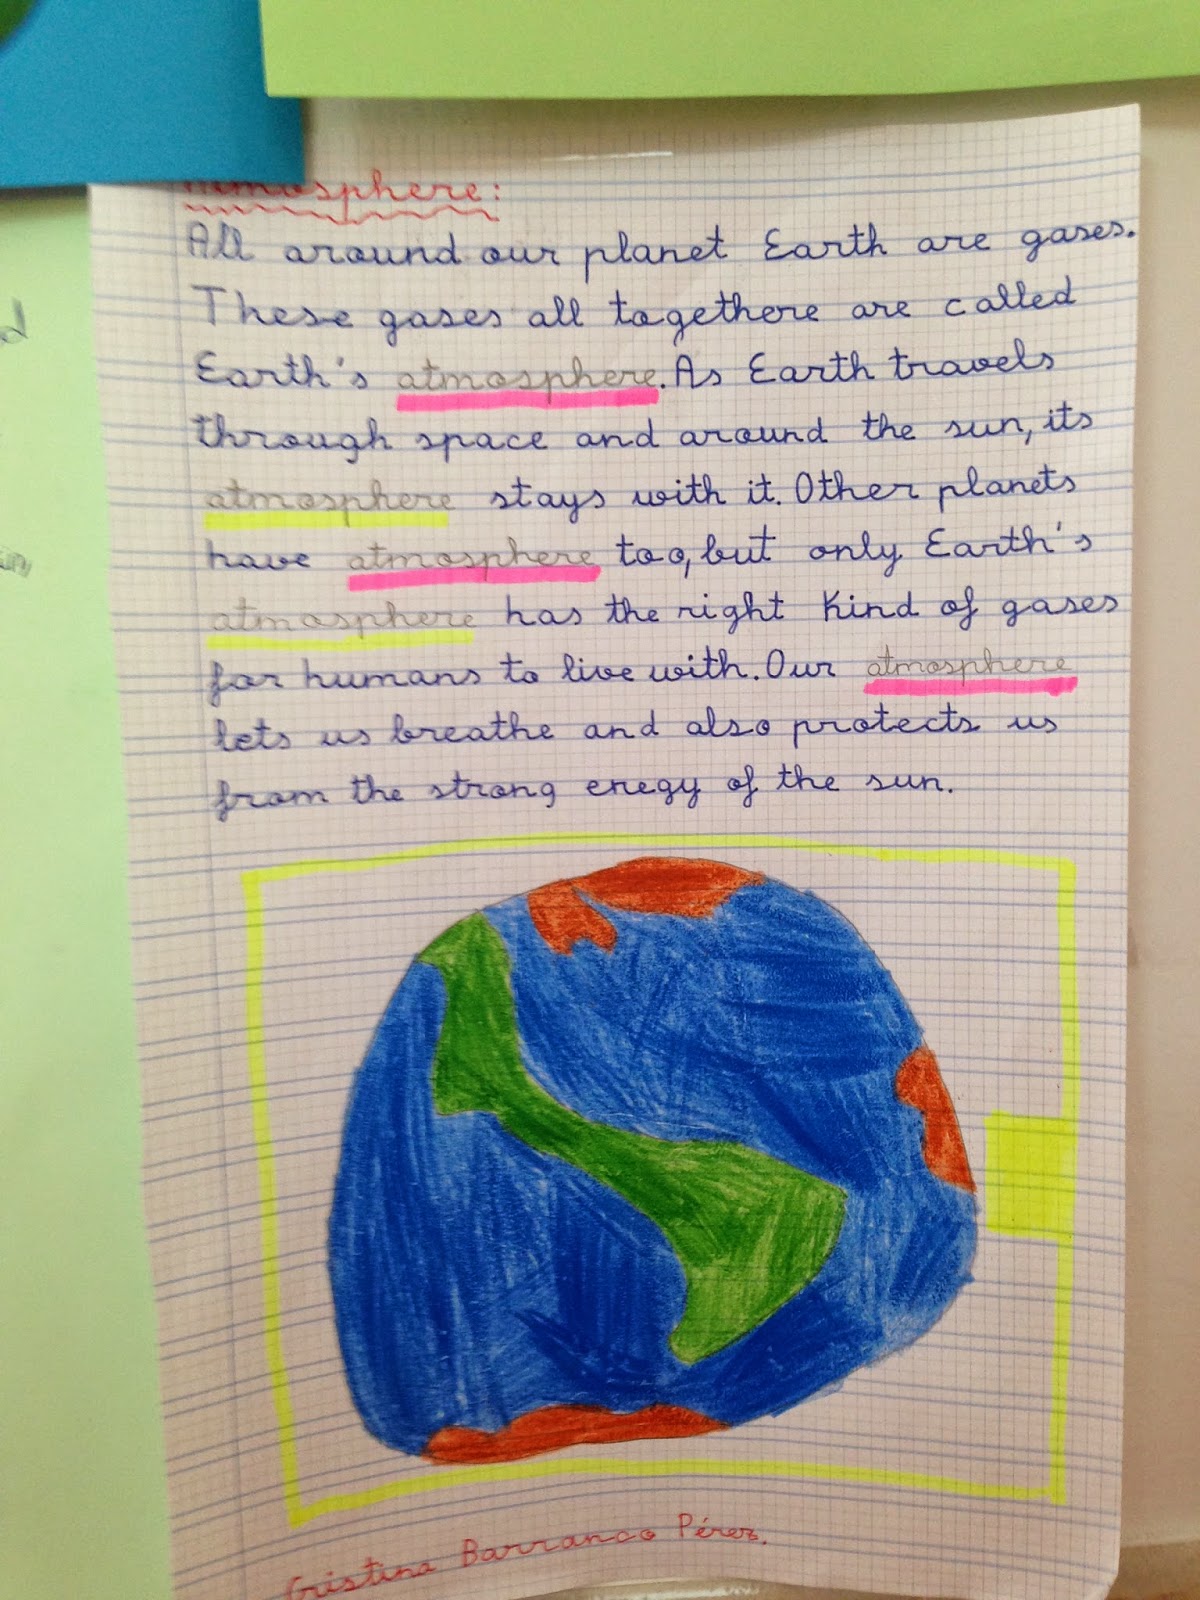 Atmosphere:
All around our planet Earth are gases.
These gases all togethere are called
Earth's atmosphere. As Earth travels
through space and around the sun, its
atmosphere stays with it. Other planets
have atmosphere too, but only Earth's
atmosphere has the right kind of gases
for humans to live with. Our atmosphere
lets us breathe and also protects us
from the strong enegy of the sun.
Cristina Barranco Pérez.